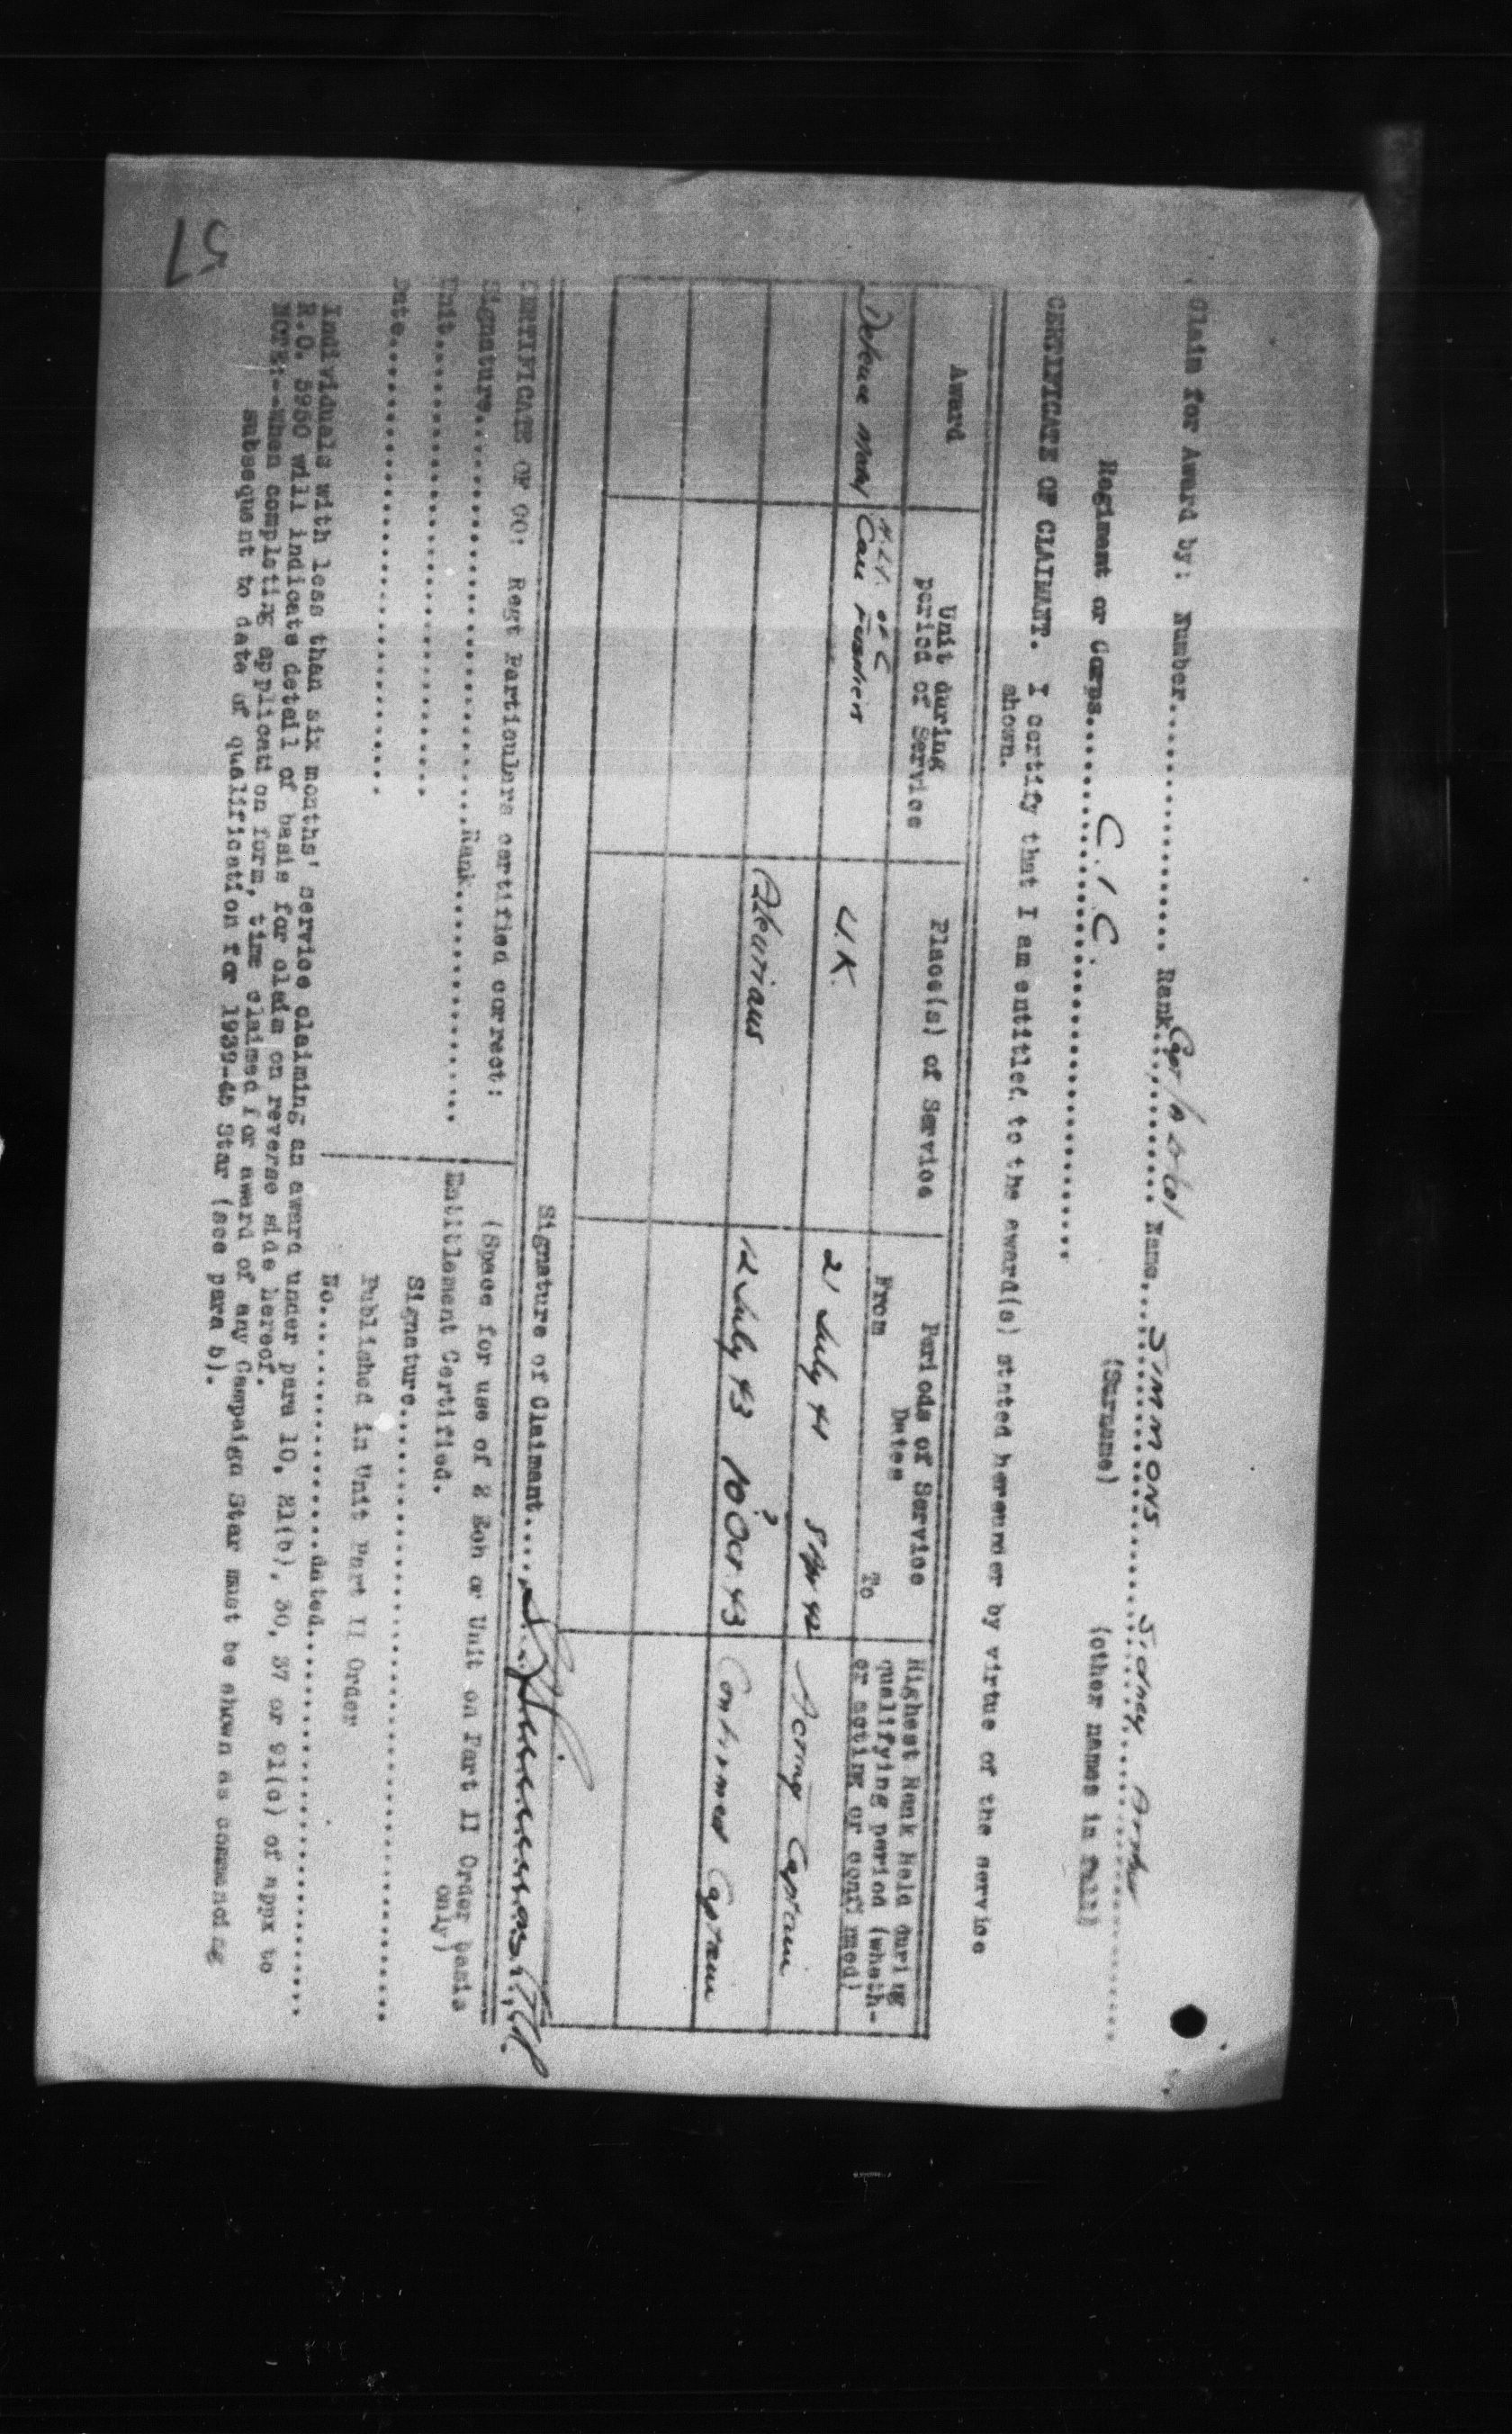 Claim for Award by: Number.................... Rank Capt/A Lt Col Name.... SIMMONS Sidney Arthur
(Surname) (other names in full)
Regiment or Corps....... C.I.C.
CERTIFICATE OF CLAIMANT. I certify that I am entitled to the award(s) stated hereunder by virtue of the service
shown.
Award
Unit during
period of Service
Place(s) of Service
Periods of Service
Dates
From To
Highest Rank Held during
qualifying period (wheth-
er acting or confirmed)
Defence Medal
H.L.I. of C
Can Fusiliers
U.K.
21 July 41
Acting Captain
12 July 43 10 ? Oct 43
Confirmed Captain
Signature of Claimant....
CERTIFICATE OF OO: Regt Particulars certified correct:
Signature....................Rank....................
Unit....................
Date....................
(Space for use of 2 Ech or Unit on Part II Order basis
only)
Entitlement Certified.
Signature....................
Published in Unit Part II Order
No....................dated....................
Individuals with less than six months' service claiming an award under para 10, 21(b), 30, 37 or 91(c) of appx to
R.O. 5950 will indicate detail of basis for claim on reverse side hereof.
NOTE:--When completing application form, time claimed for award of any Campaign Star must be shown as commencing
subsequent to date of qualification for 1939-45 Star (see para 5).
57